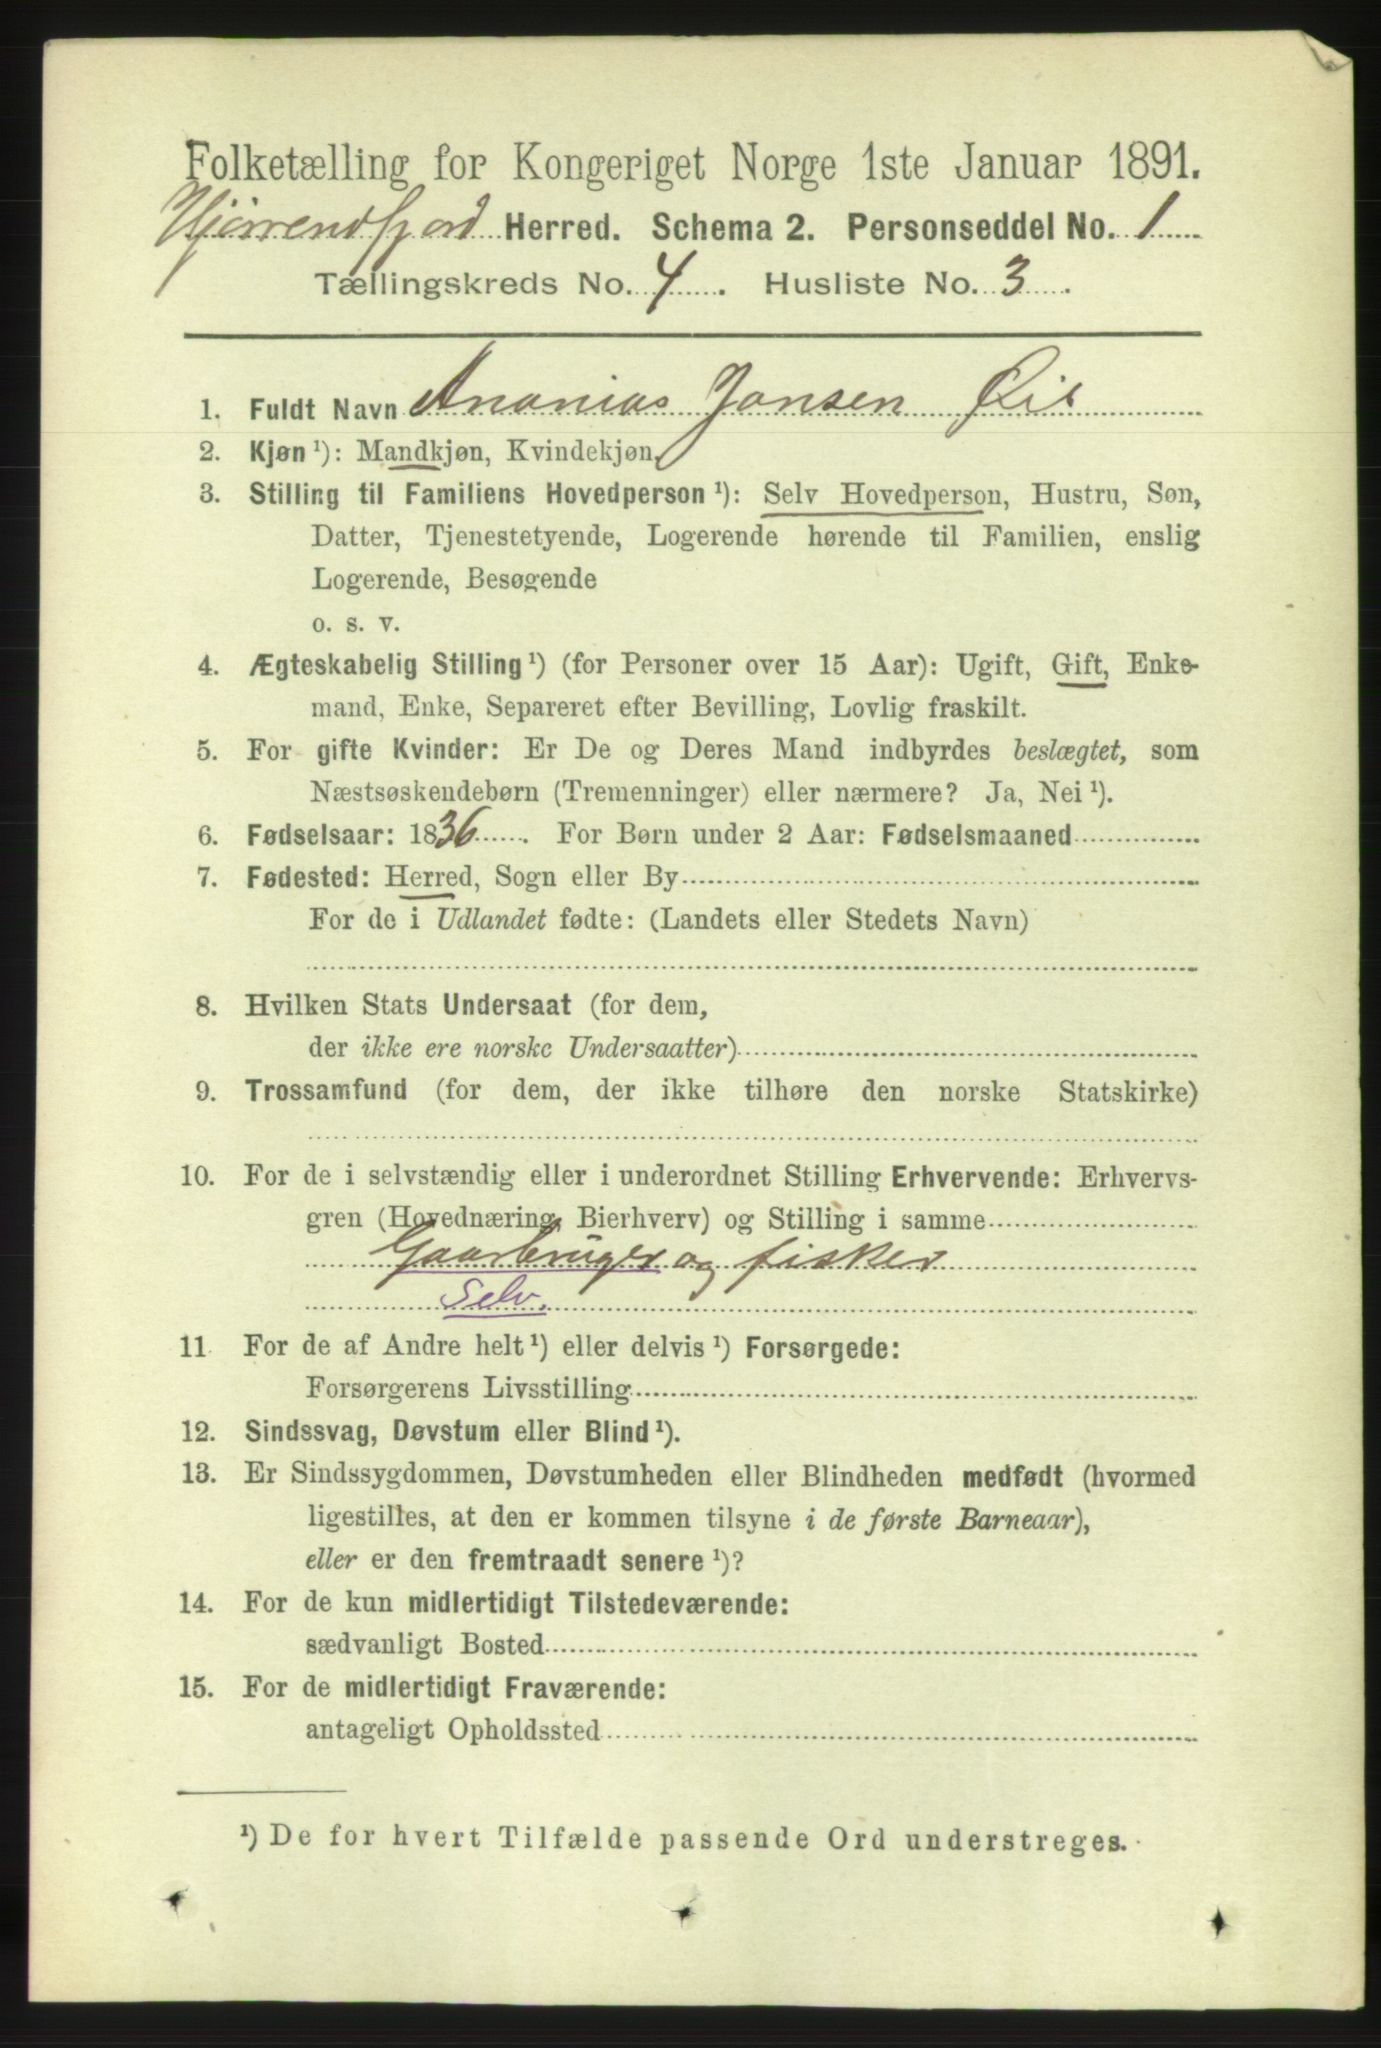 Folketælling for Kongeriget Norge 1ste Januar 1891.
Hjørrendfjord Herred. Schema 2. Personseddel No. 1
Tællingskreds No. 4. Husliste No. 3.
1. Fuldt Navn Ananias Jonsen
2. Kjøn ¹): Mandkjøn, Kvindekjøn.
3. Stilling til Familiens Hovedperson ¹): Selv Hovedperson, Hustru, Søn,
Datter, Tjenestetyende, Logerende hørende til Familien, enslig
Logerende, Besøgende
o. s. v.
4. Ægteskabelig Stilling ¹) (for Personer over 15 Aar): Ugift, Gift, Enke-
mand, Enke, Separeret efter Bevilling, Lovlig fraskilt.
5. For gifte Kvinder: Er De og Deres Mand indbyrdes beslægtet, som
Næstsøskendebørn (Tremenninger) eller nærmere? Ja, Nei ¹).
6. Fødselsaar: 1836. For Børn under 2 Aar: Fødselsmaaned
7. Fødested: Herred, Sogn eller By
For de i Udlandet fødte: (Landets eller Stedets Navn)
8. Hvilken Stats Undersaat (for dem,
der ikke ere norske Undersaatter)
9. Trossamfund (for dem, der ikke tilhøre den norske Statskirke)
10. For de i selvstændig eller i underordnet Stilling Erhvervende: Erhvervs-
gren (Hovednæring, Bierhverv) og Stilling i samme
Gaarbruger og fisker
Selv.
11 For de af Andre helt ¹) eller delvis ¹) Forsørgede:
Forsørgerens Livsstilling
12. Sindssvag, Døvstum eller Blind ¹).
13. Er Sindssygdommen, Døvstumheden eller Blindheden medfødt (hvormed
ligestilles, at den er kommen tilsyne i de første Barneaar),
eller er den fremtraadt senere ¹)?
14. For de kun midlertidigt Tilstedeværende:
sædvanligt Bosted
15. For de midlertidigt Fraværende:
antageligt Opholdssted
¹) De for hvert Tilfælde passende Ord understreges.